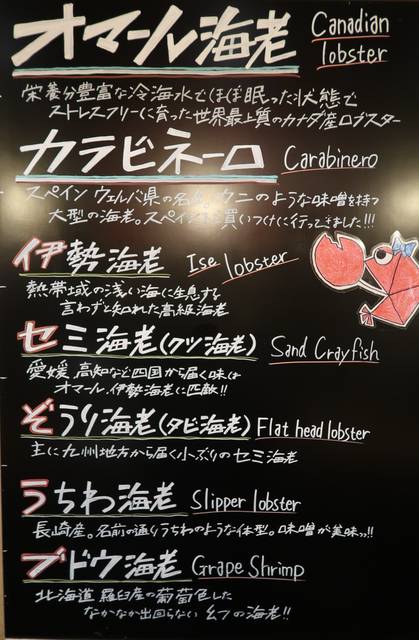 オマール海老 Canadian lobster
栄養分豊富な冷海水でほぼ眠った状態で
ストレスフリーに育った世界最上質のカナダ産ロブスター
カラビネーロ Carabinero
スペイン ウェルバ県の名 ウニのような味噌を持つ
大型の海老。スペイン 買いつけに行ってきました!!!
伊勢海老 Ise lobster
熱帯域の浅い海に生息する
言わずと知れた高級海老
セミ海老(クツ海老) Sand Crayfish
愛媛、高知など四国から届く味は
オマール、伊勢海老に匹敵!!
ぞうり海老(タビ海老) Flat head lobster
主に九州地方から届く小ぶりのセミ海老
うちわ海老 Slipper lobster
長崎産。名前の通りうちわのような体型。味噌が美味っ!!
ブドウ海老 Grape Shrimp
北海道 羅臼産の葡萄色した
なかなか出回らない幻の海老!!